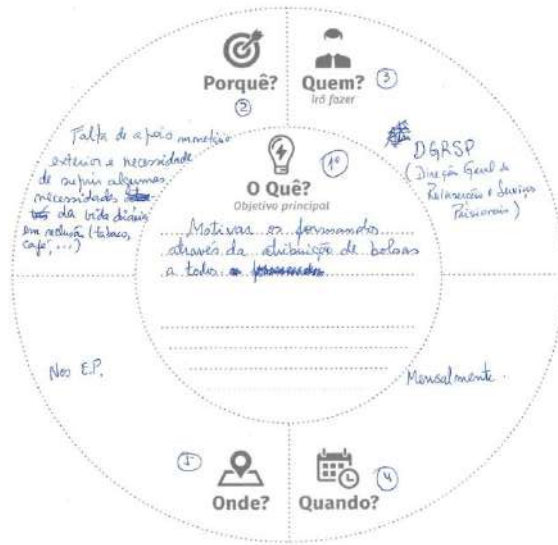 Porquê?
2
Falta de apoio monetário
exterior e necessidade
de suprir algumas
necessidades
da vida diária
em reclusão (tabaco,
café, ...)
Quem?
Irá fazer
3
DGRSP
(Direção Geral de
Reinserção e Serviços
Prisionais)
1º
O Quê?
Objetivo principal
Motivar os formandos
através da atribuição de bolsas
a todos
Nos E.P.
5
Onde?
Mensalmente.
4
Quando?